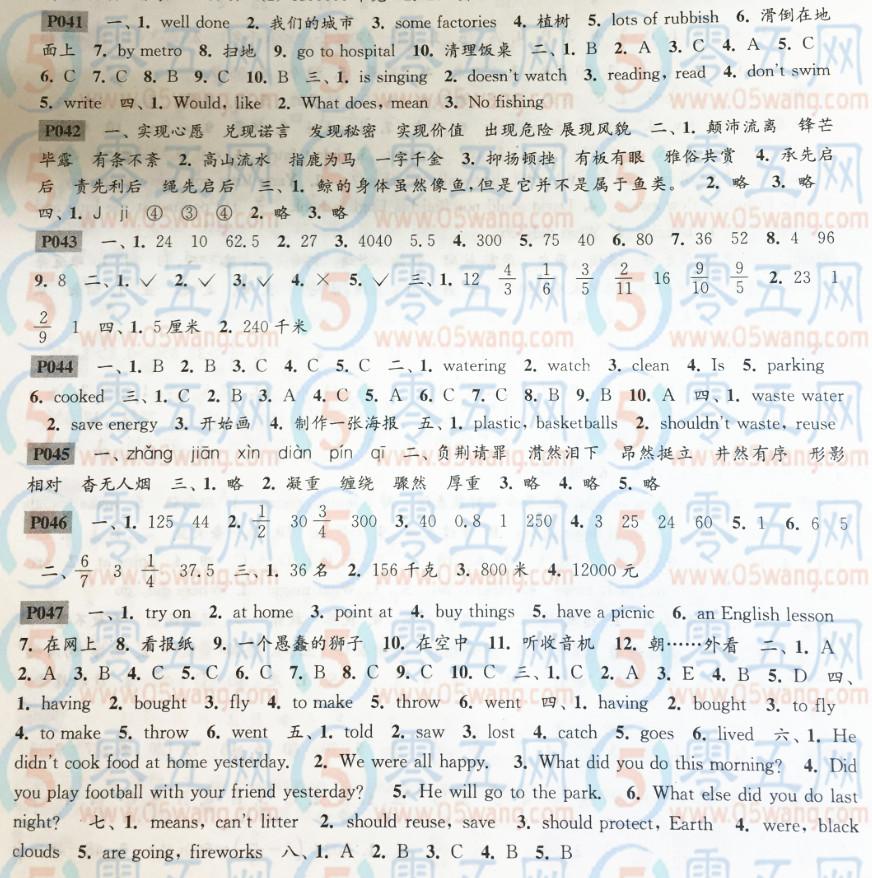 P041 一、1. well done 2. 我们的城市 3. some factories 4. 植树 5. lots of rubbish 6. 滑倒在地
面上 7. by metro 8. 扫地 9. go to hospital 10. 清理饭桌 二、1. B 2. A 3. C 4. A 5. C
6. C 7. C 8. B 9. C 10. B 三、1. is singing 2. doesn't watch 3. reading, read 4. don't swim
5. write 四、1. Would, like 2. What does, mean 3. No fishing
P042 一、实现心愿 兑现诺言 发现秘密 实现价值 出现危险 展现风貌 二、1. 颠沛流离 锋芒
毕露 有条不紊 2. 高山流水 指鹿为马 一字千金 3. 抑扬顿挫 有板有眼 雅俗共赏 4. 承先启
后 责先利后 绳先启后 三、1. 鲸的身体虽然像鱼,但是它并不是属于鱼类。 2. 略 3. 略
四、1. J ji ④ ③ ④ 2. 略 3. 略
P043 一、1. 24 10 62.5 2. 27 3. 4040 5.5 4. 300 5. 75 40 6. 80 7. 36 52 8. 4 96
9. 8 二、1. ✓ 2. ✓ 3. ✓ 4. × 5. ✓ 三、1. 12 4/3 1/6 3/5 2/11 16 9/10 9/5 2. 23 1
2/9 1 四、1. 5 厘米 2. 240 千米
P044 一、1. B 2. B 3. C 4. C 5. C 二、1. watering 2. watch 3. clean 4. Is 5. parking
6. cooked 三、1. C 2. B 3. A 4. C 5. A 6. C 7. C 8. B 9. B 10. A 四、1. waste water
2. save energy 3. 开始画 4. 制作一张海报 五、1. plastic, basketballs 2. shouldn't waste, reuse
P045 一、zhǎng jiān xìn diàn pín qī 二、负荆请罪 潸然泪下 昂然挺立 井然有序 形影
相对 杳无人烟 三、1. 略 2. 凝重 缠绕 骤然 厚重 3. 略 4. 略 5. 略
P046 一、1. 125 44 2. 1/2 30 3/4 300 3. 40 0.8 1 250 4. 3 25 24 60 5. 1 6. 6 5
二、6/7 3 1/4 37.5 三、1. 36 名 2. 156 千克 3. 800 米 4. 12000 元
P047 一、1. try on 2. at home 3. point at 4. buy things 5. have a picnic 6. an English lesson
7. 在网上 8. 看报纸 9. 一个愚蠢的狮子 10. 在空中 11. 听收音机 12. 朝……外看 二、1. A
2. A 3. B 4. C 5. C 6. C 7. B 8. C 9. C 10. C 三、1. C 2. A 3. E 4. B 5. D 四、
1. having 2. bought 3. fly 4. to make 5. throw 6. went 四、1. having 2. bought 3. to fly
4. to make 5. throw 6. went 五、1. told 2. saw 3. lost 4. catch 5. goes 6. lived 六、1. He
didn't cook food at home yesterday. 2. We were all happy. 3. What did you do this morning? 4. Did
you play football with your friend yesterday? 5. He will go to the park. 6. What else did you do last
night? 七、1. means, can't litter 2. should reuse, save 3. should protect, Earth 4. were, black
clouds 5. are going, fireworks 八、1. A 2. B 3. C 4. B 5. B